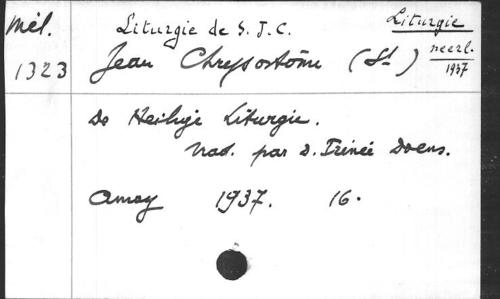 Mél. Liturgie de S. J. C. Liturgie
1323 Jean Chrysostôme (St) neerl.
1937
De Heilige Liturgie.
Trad. par D. Irénée Doens.
Amay 1937. 16.